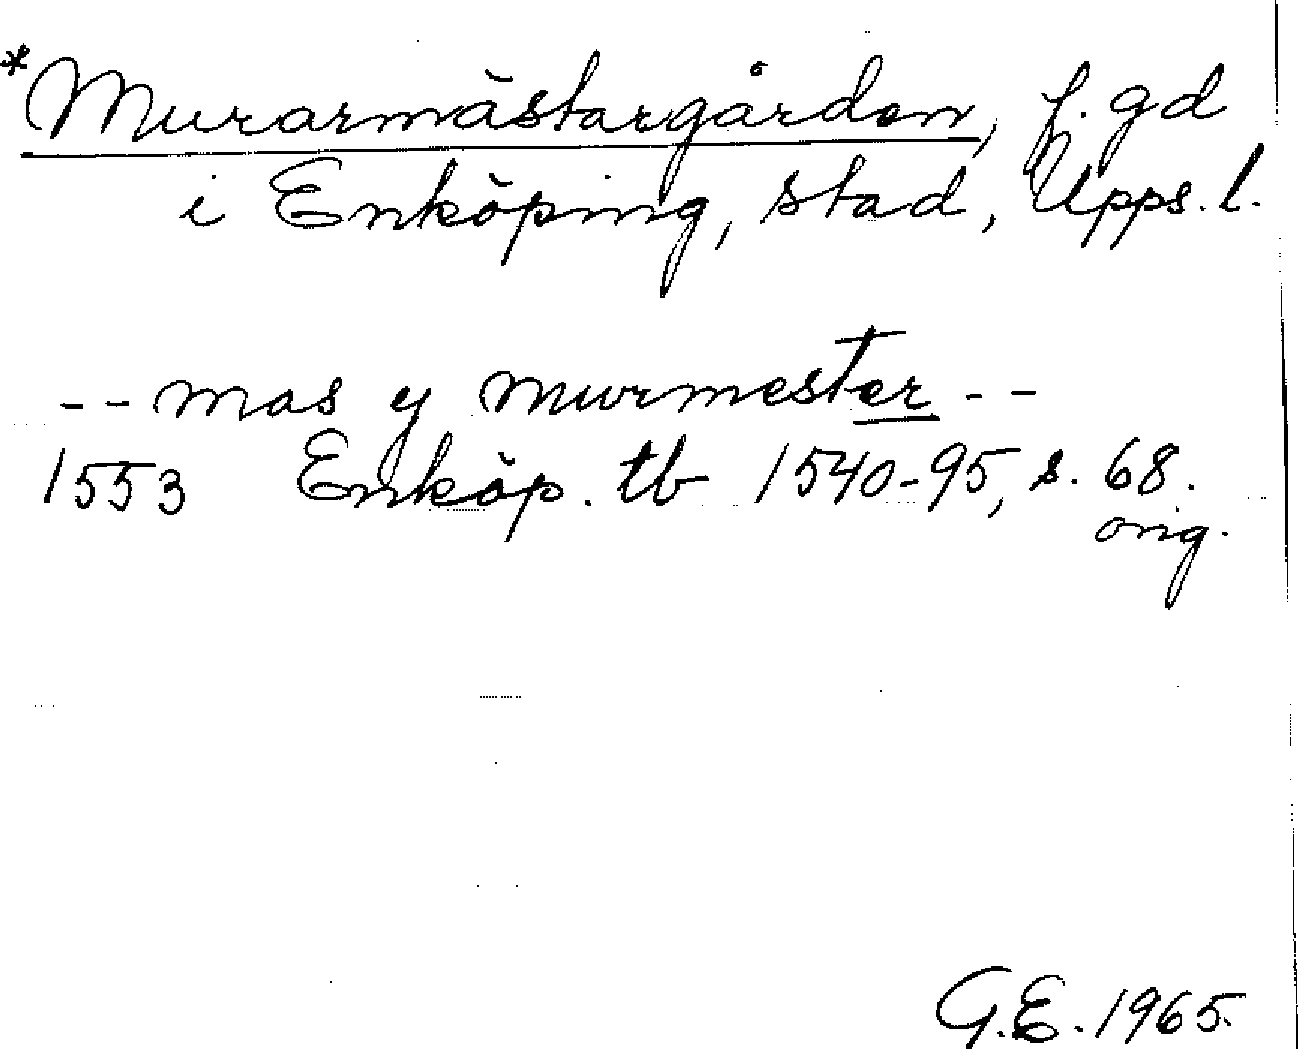 *Murarmästargården, f. gd
i Enköping, stad, Upps. l.
-- mas y murmester --
1553 Enköp. tb 1540-95, s. 68.
orig.
G.E. 1965.